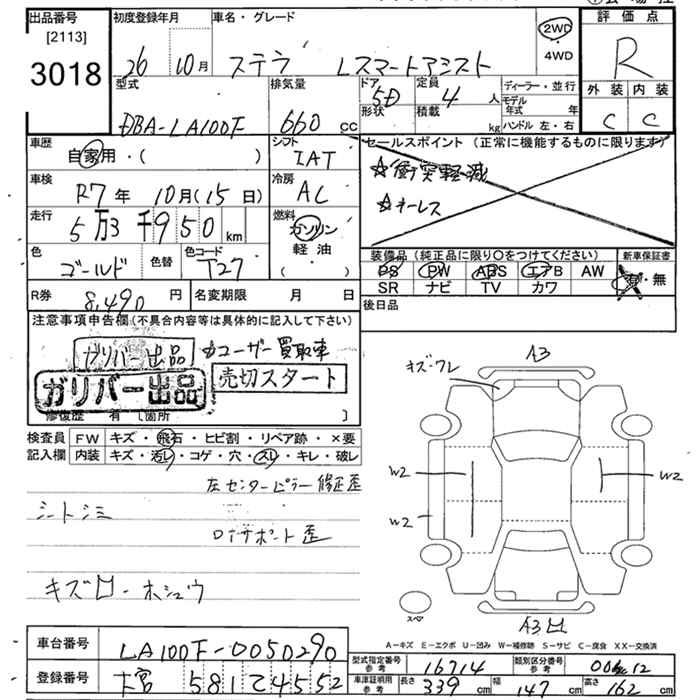 出品番号 初度登録年月 車名・グレード 評価点
[2113]
3018 26 10月 ステラ Lスマートアシスト 2WD ・ 4WD R
型式 排気量 ドア 定員 ディーラー・並行 外装 内装
DBA-LA100F 660 cc 5D 4 人 モデル年式 年 C C
形状 積載 kg ハンドル 左・右
車歴 シフト セールスポイント(正常に機能するものに限ります)
自家用・( ) IAT ☆衝突軽減
車検 冷房 ☆キーレス
R7年 10月(15日) AC
走行 燃料
5万3千950km ガソリン
軽油
( )
色 色替 色コード 装備品(純正品に限り○をつけてください) 新車保証書
ゴールド T27 PS PW ABS エアB AW 有・無
SR ナビ TV カワ
R券 8,490円 名変期限 月 日 後日品
注意事項申告欄(不具合内容等は具体的に記入して下さい)
ガリバー出品 ☆ユーザー買取車
ガリバー出品 売切スタート
修復歴 有 [箇所 ]
検査員 FW キズ・飛石・ヒビ割・リペア跡・×要
記入欄 内装 キズ・汚レ・コゲ・穴・スレ・キレ・破レ
左センターピラー修正歪
シートシミ
ロアサポート歪
キズ凹・ホシュウ
A3
キズ・ワレ
W2
W2
W2
スペア
A3凹
A-キズ E-エクボ U-凹み W-補修跡 S-サビ C-腐食 XX-交換済
車台番号 LA100F-0050290
型式指定番号 参考 16714 類別区分番号 参考 12
登録番号 大宮 581 て 4552
車庫証明用 参考 長さ 339cm 幅 147cm 高さ 162cm